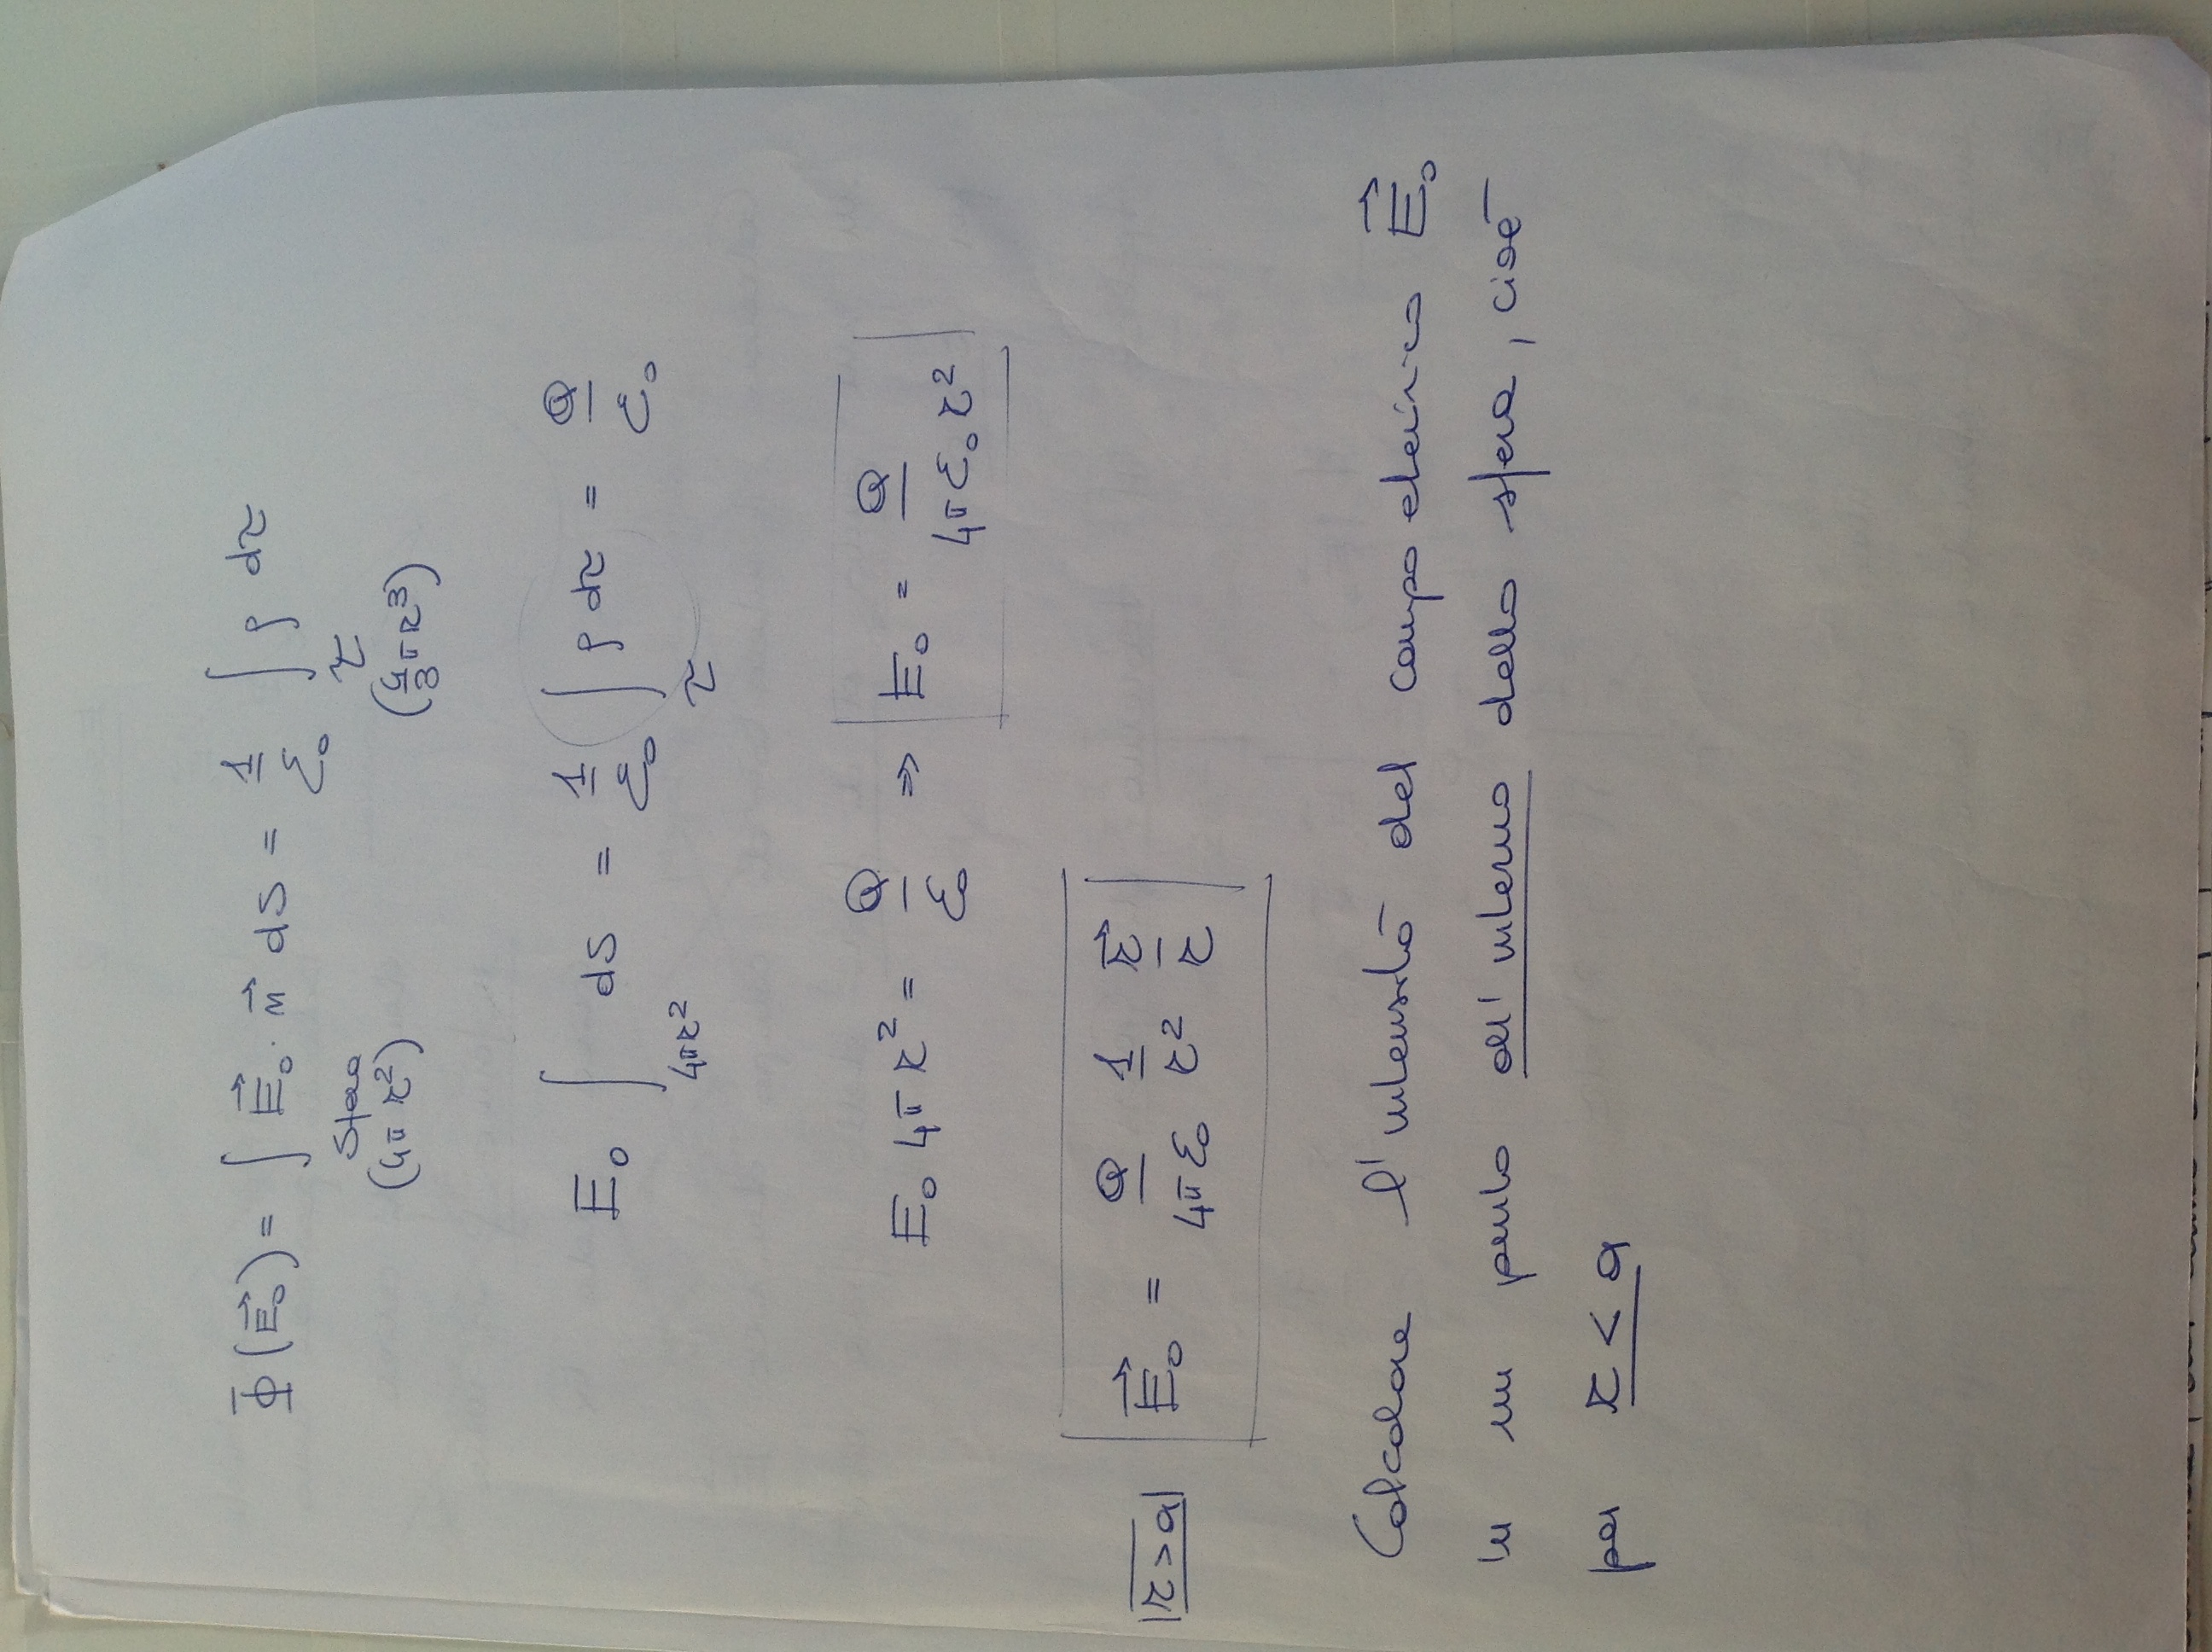 Φ(E⃗₀) = ∫ E⃗₀ · n⃗ dS = 1/ε₀ ∫ ρ dτ
Sfera τ
(4πr²) (4/3 πr³)
E₀ ∫ dS = 1/ε₀ ∫ ρ dτ = Q/ε₀
4πr² τ
E₀ 4πr² = Q/ε₀ => E₀ = Q/4πε₀r²
r>a E⃗₀ = Q/4πε₀ 1/r² r⃗/r
Calcolare l'intensità del campo elettrico E⃗₀
in un punto all'interno della sfera, cioè
per r < a